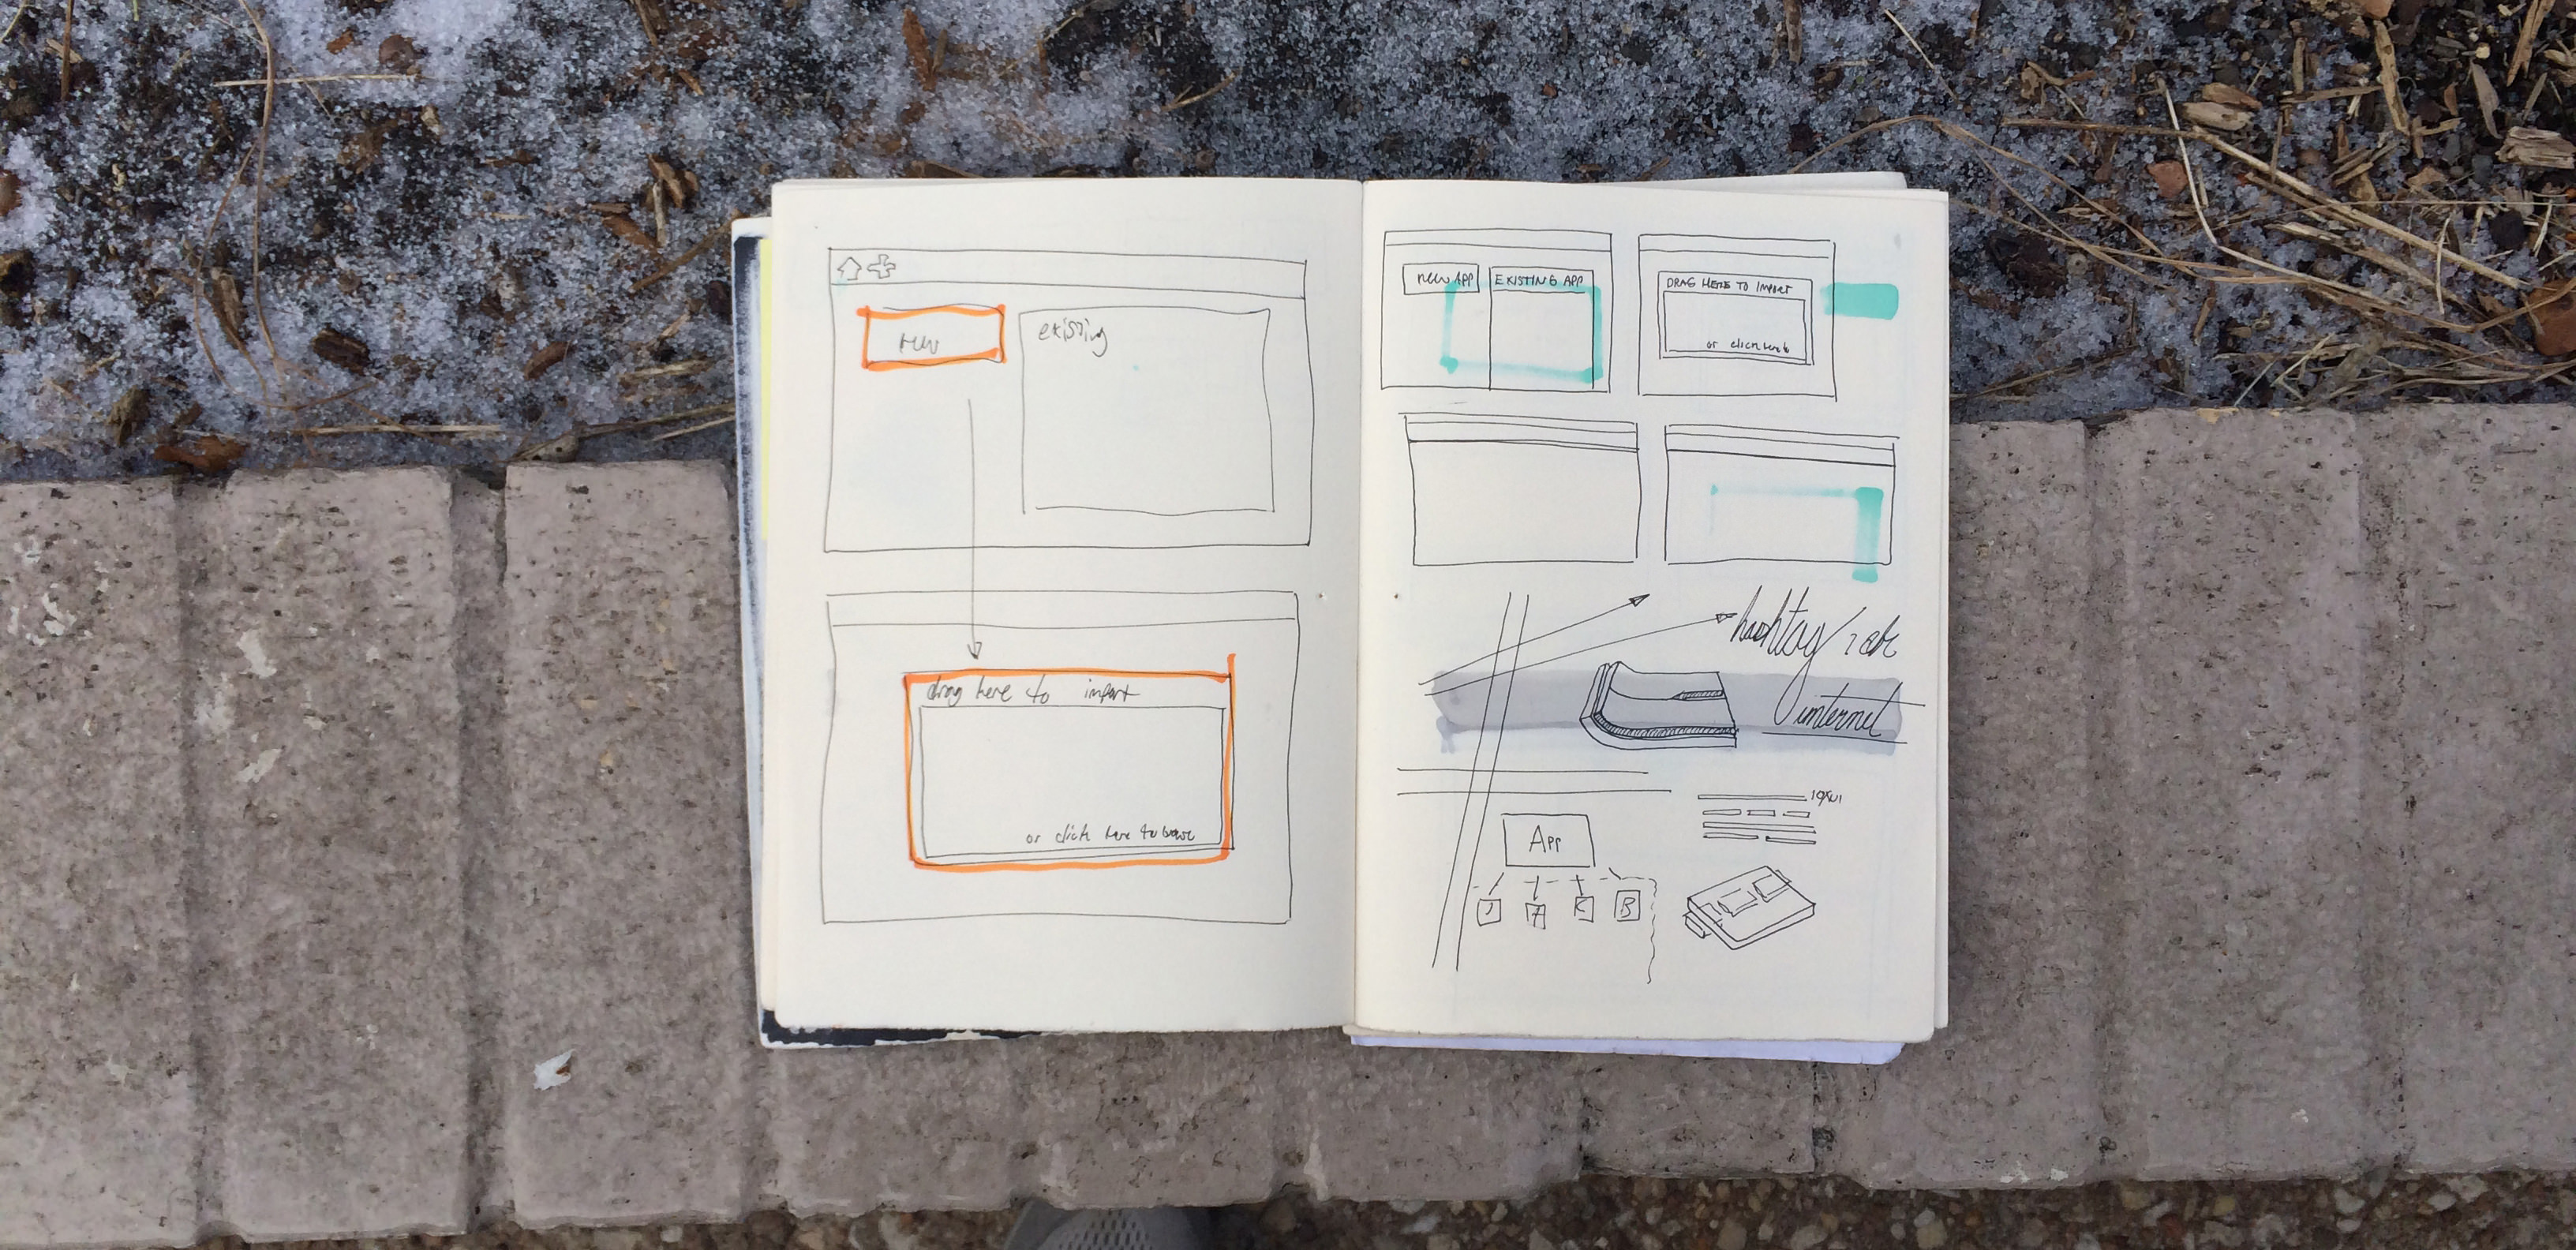 new
existing
drag here to import
or click here to browse
new APP
EXISTING APP
DRAG HERE TO IMPORT
or click here to
hashtag/
internet
App
J
A
K
B